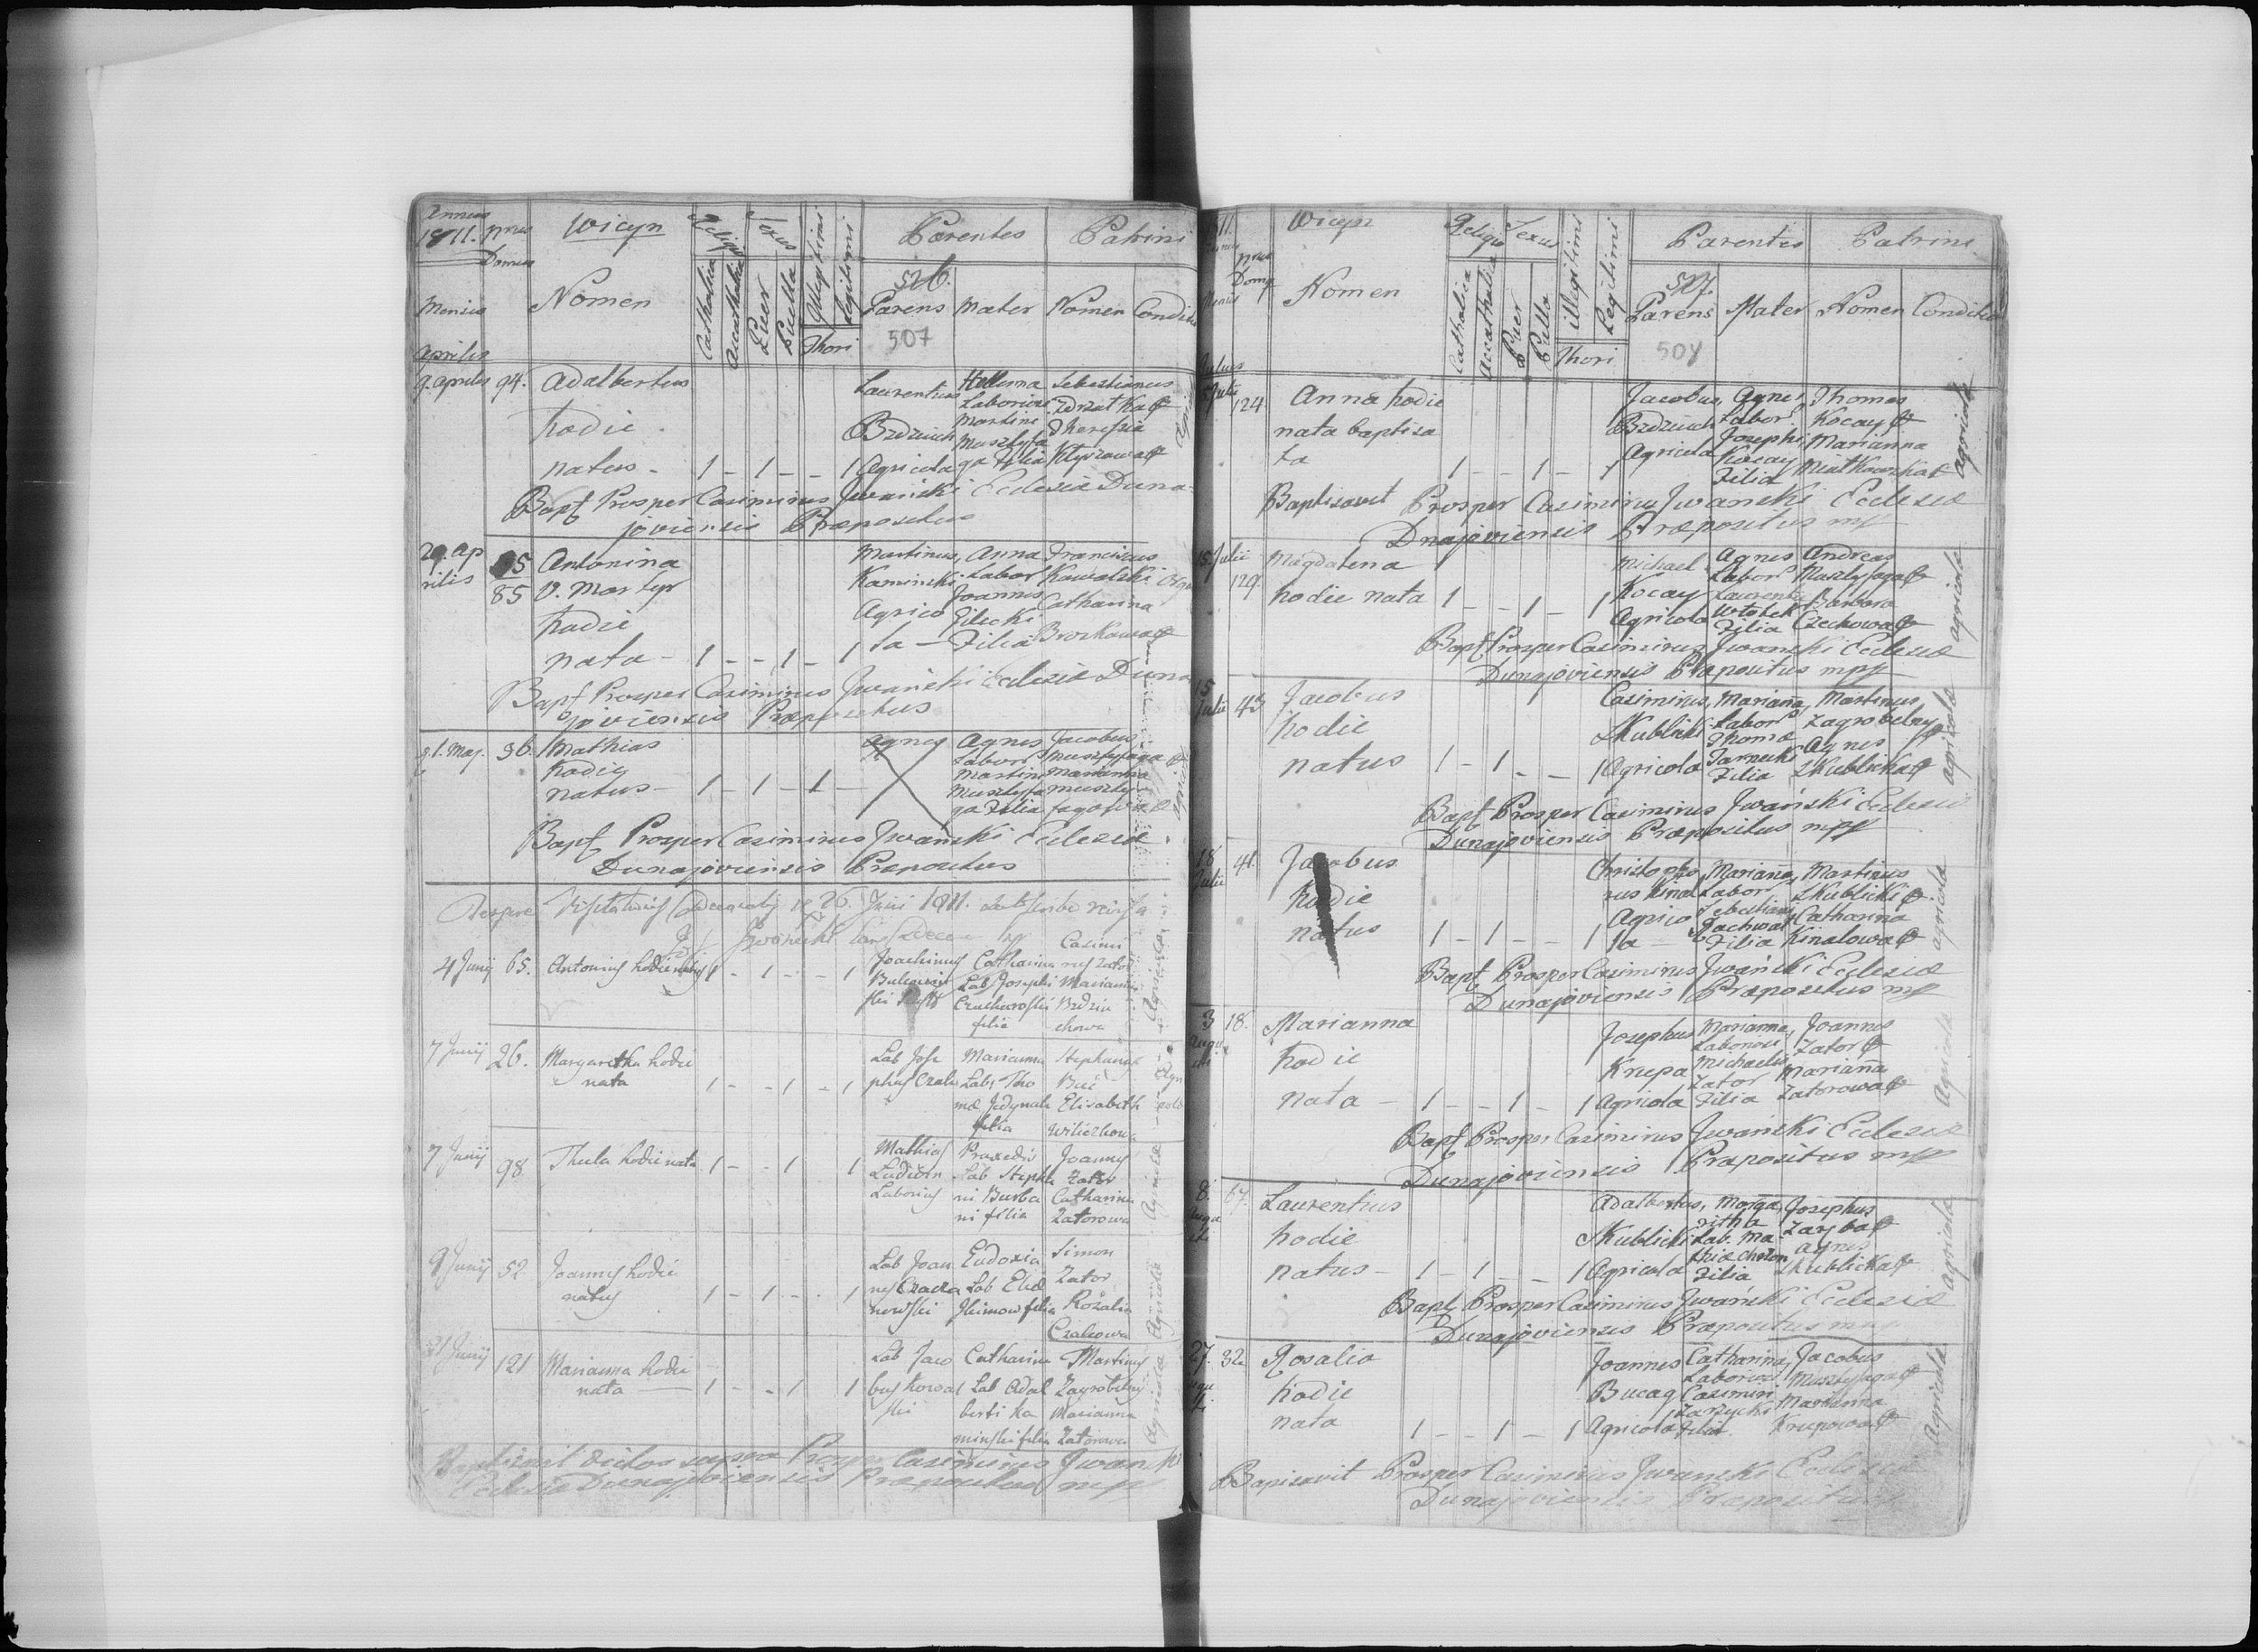 Annus
1811. Nrus Domus
Wicyn
Religio
Sexus
Illegitimi
Legitimi
Parentes
Patrini
Mensis
Nomen
Catholica
Accatholica
Puer
Puella
Thori
526.
Parens Mater Nomen Conditio
507
Aprilis
9. Aprilis 94. Adalbertus
hodie
natus - 1 - 1 - - 1
Laurentius
Brdziuch
Agricola
Laboriosi
Martini
Muszlyfa
ga Filia
Sebestianus
Zdrzatka
Theresia
Bapt Prosper Casimirus Jwański Eclesiæ Duna
joviensis Præpositus
29. Ap
rilis
95
85
Antonina
V. Martyr
hodie
nata - 1 - - 1 - 1
Martinus,
Kaminski
Agrico
la -
Anna
Labor
Joannis
Filecki
Filia
Franciscus
Kowalski
Catharina
Bapt Prosper Casimirus Jwański Eclesiæ Duna
joviensis Præpositus
1. Maj. 36. Mathias
hodie
natus - 1 - 1 - 1 -
Agnes
Labor
Martini
Muszlyfa
ga Filia
Jacobus
Muszlyfaga
Marianna
Muszly
fagowa
Bapt Prosper Casimirus Jwański Eclesiæ
Dunajoviensis Præpositus
26. Junii 1811.
4 Junij 65. Antonius hodie natus 1 - 1 - - 1
Joachimus
Catharina
Lab Josephi
filia
Casimi
rus Zator
Marianna
Brdziu
chowa
7 Junij 26. Margaretha hodie
nata 1 - - 1 - 1
Lab Jose
phus
Marianna
Lab: Tho
mæ Jedynak
filia
Stephanus
Elisabeth
7 Junij 98 Thecla hodie nata 1 - - 1 1
Mathias
Laborius
Praxedis
Lab Stepha
ni Burba
ni filia
Joannes
Zator
Catharina
Zatorowa
9 Junij 52. Joannes hodie
natus 1 - 1 - - 1
Lab Joan
nes
Eudoxia
Lab Eliæ
filia
Simon
Zator
Rozalia
Czakowa
21 Junij 121 Marianna hodie
nata 1 - - 1 1
Lab Jaco
bus Kowal
ski
Catharina
Lab Adal
berti Ka
minski filia
Martinus
Zagrobelny
Marianna
Zatorowa
Baptizavit dictos supra Prosper Casimirus Jwański
Eclesiæ Dunajoviensis Præpositus mpp
1811.
Nrus
Domus
Wicyn
Religio Sexus
illegitimi
Legitimi
Parentes
Patrini
Nomen
Catholica
Accatholica
Puer
Puella
Thori
507.
Parens Mater Nomen Conditio
508
Julius
Julii 124 Anna hodie
nata baptisa
ta 1 - - 1 - 1
Jacobus,
Brdziuch
Agricola
Agnes
Labor
Josephi
Kocay
Filia
Thomas
Kocay
Marianna
agricola
Baptisavit Prosper Casimirus Jwański Eclesiæ
Dnajoviensis Præpositus mpp
15. Julii 129. Magdalena
hodie nata 1 - - 1 - 1
Michael
Kocay
Agricola
Agnes
Labor
Laurentii
Filia
Andreas
Muszlyfaga
Barbara
Czechowa
agricola
Bapt Prosper Casimirus Jwański Eclesiæ
Dunajoviensis Præpositus mpp
15
Julii 43 Jacobus
hodie
natus 1 - 1 - - 1
Casimirus,
Skublicki
Agricola
Marianna,
Labor
Thomæ
Filia
Martinus
Zagrobelny
Agnes
Skublicka
agricola
Bapt Prosper Casimirus Jwański Eclesiæ
Dunajoviensis Præpositus mpp
18
Julii 41. Jacobus
hodie
natus 1 - 1 - - 1
Christopho
rus Kinal
Agrico
la -
Marianna,
Labor
Sebestiani
Filia
Martinus
Skublicki
Catharina
Kinalowa
agricola
Bapt Prosper Casimirus Jwański Eclesiæ
Dunajoviensis Præpositus mpp
3
Augu
sti 18. Marianna
hodie
nata - 1 - - 1 - 1
Josephus
Krupa
Agricola
Marianna,
Laboriosi
Michaelis
Zator
Filia
Joannes
Zator
Marianna
Zatorowa
Agricola
Bapt Prosper Casimirus Jwański Eclesiæ
Dunajoviensis Præpositus mpp
8.
Augu
sti 67. Laurentius
hodie
natus - 1 - 1 - - 1
Adalbertus,
Skublicki
Agricola
Marga
ritha
Lab. Ma
thiæ
Filia
Josephus
Zaryba
Agnes
Skublicka
agricola
Bapt Prosper Casimirus Jwański Eclesiæ
Dunajoviensis Præpositus mpp
27. 32 Rosalia
hodie
nata 1 - - 1 - 1
Joannes
Agricola
Catharina,
Laboriosi
Casimiri
Zarzycki
Filia
Jacobus
Muszlyfaga
Marianna
Krupowa
Agricola
Bapisavit Prosper Casimirus Jwański Eclesiæ
Dunajoviensis Præpositus